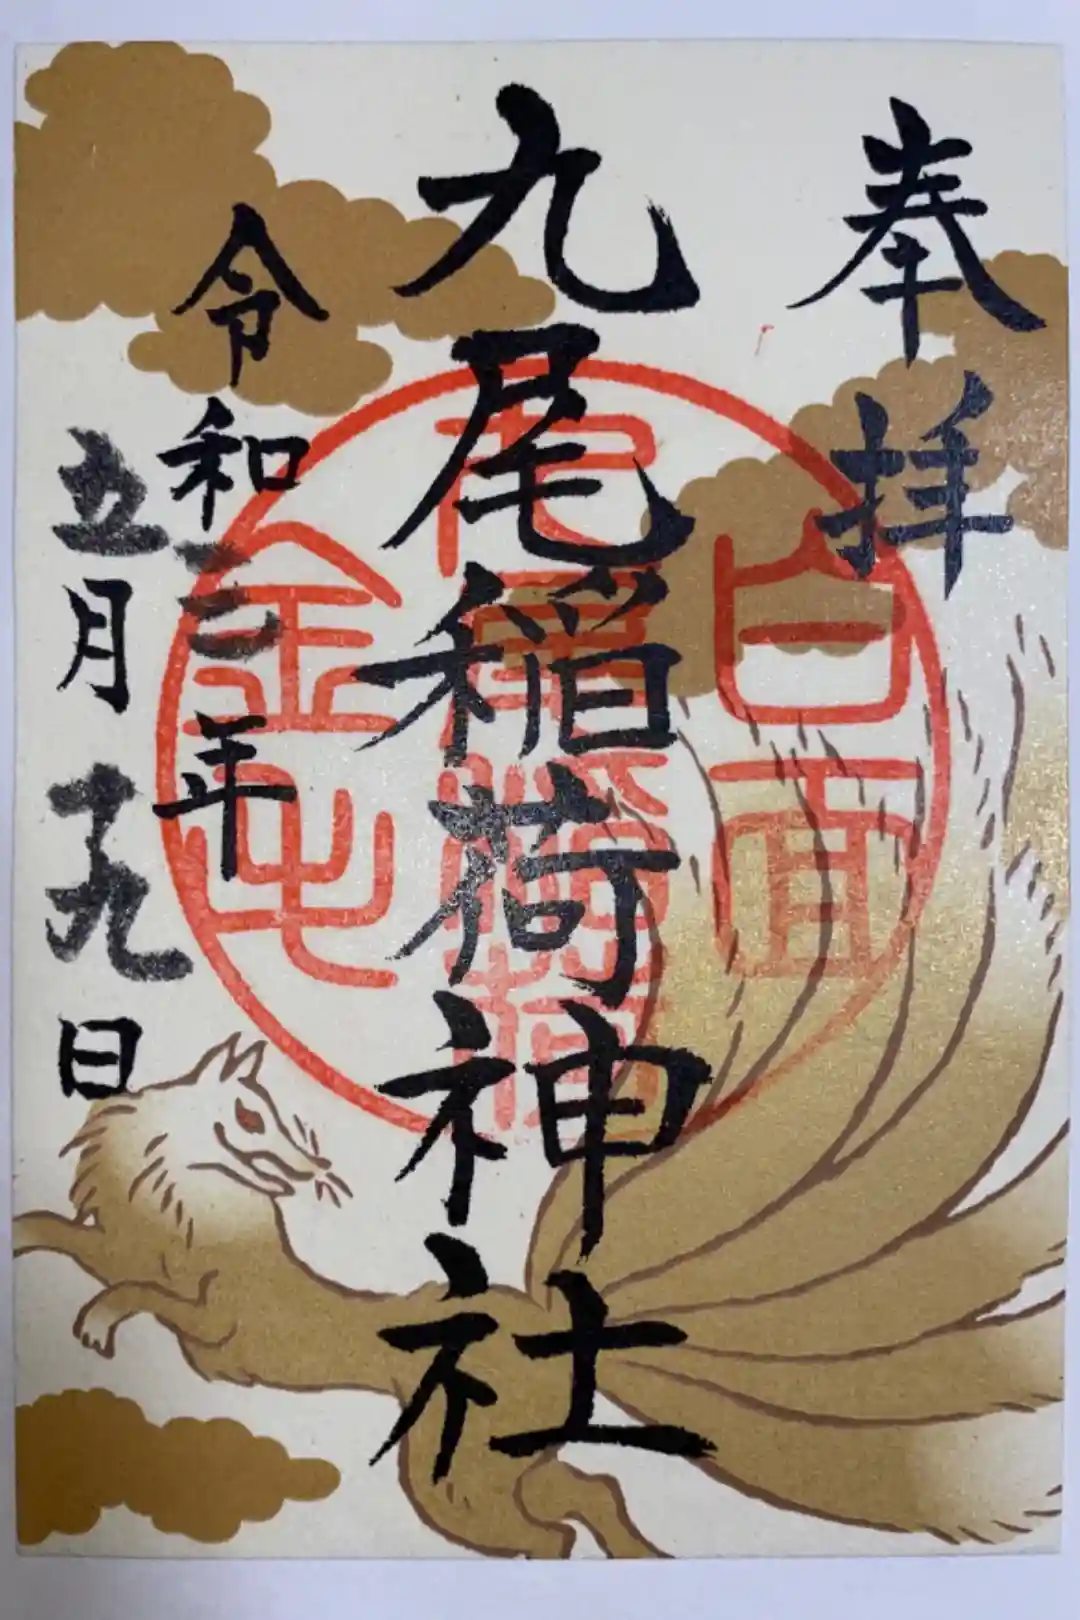 奉拝
九尾稲荷神社
令和三年
五月十九日
白面
金毛